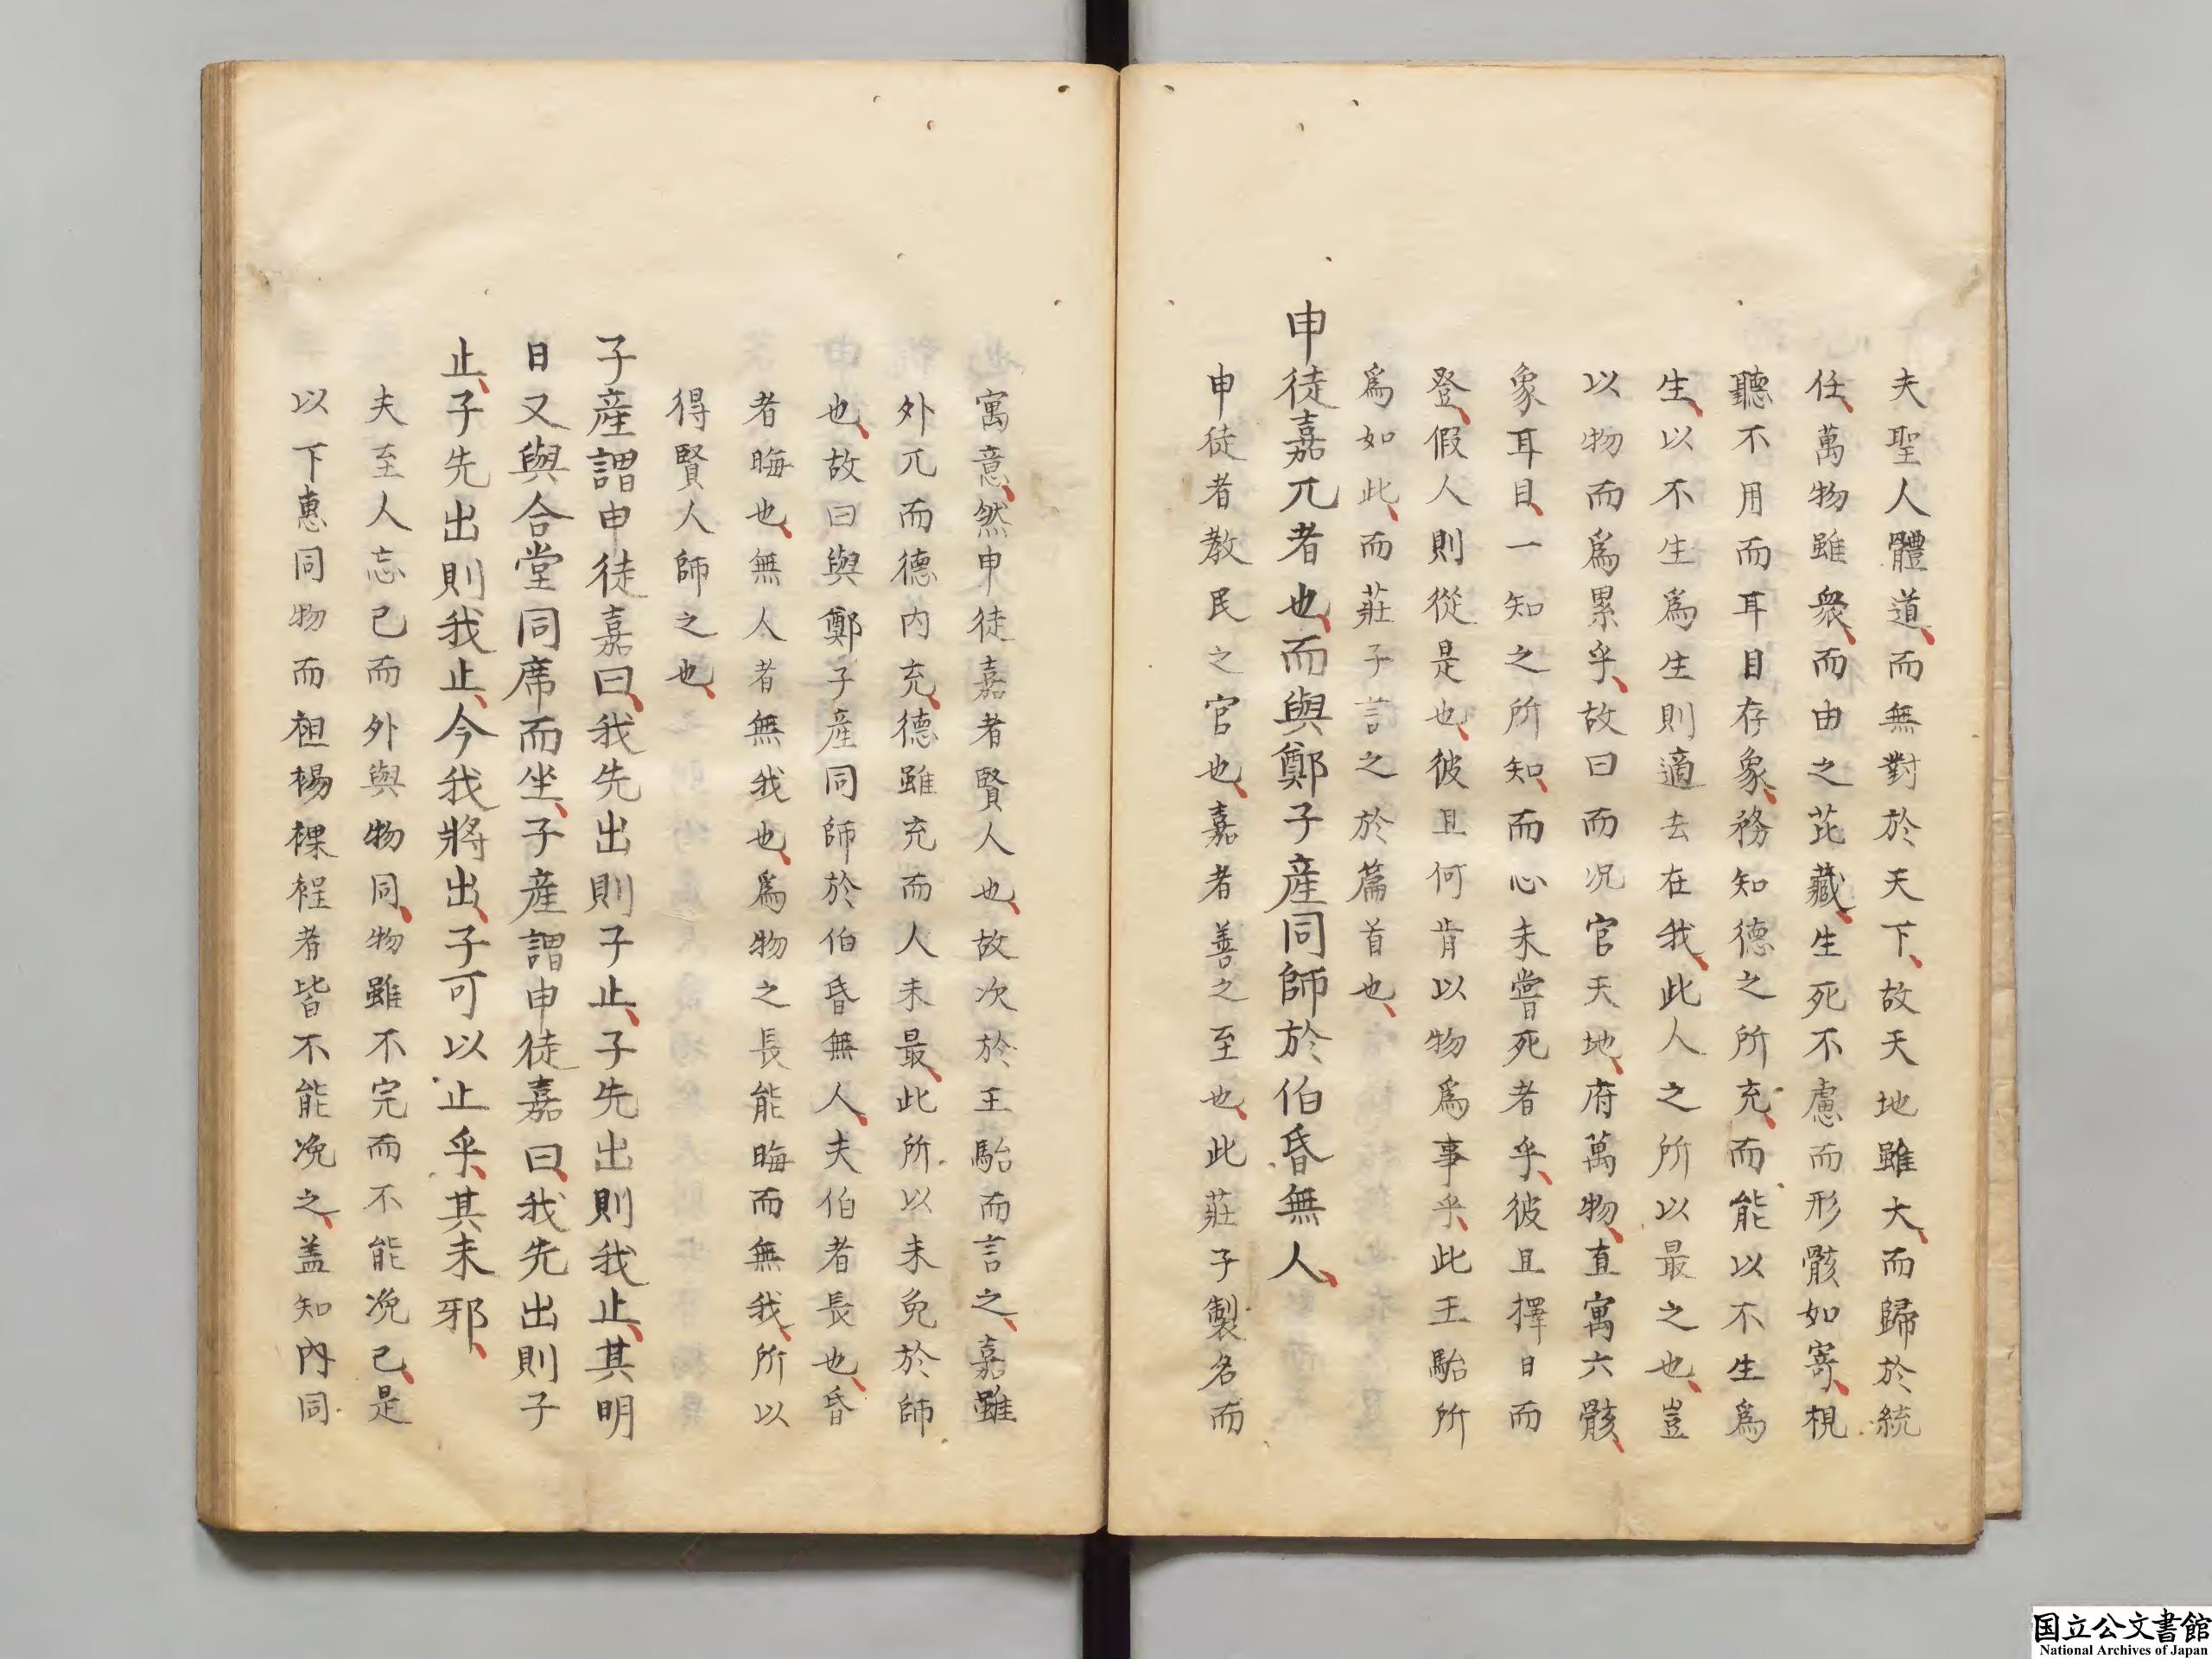 夫聖人體道而無對於天下故天地雖大而歸於統
任萬物雖衆而由之芘藏生死不慮而形骸如寄視
聽不用而耳目存象務知德之所充而能以不生爲
生以不生爲生則適去在我此人之所以最之也豈
以物而爲累乎故曰而况官天地府萬物直寓六骸
象耳目一知之所知而心未嘗死者乎彼且擇日而
登假人則從是也彼且何肯以物爲事乎此王駘所
爲如此而莊子言之於篇首也
申徒嘉兀者也而與鄭子產同師於伯昏無人
申徒者教民之官也嘉者善之至也此莊子製名而
寓意然申徒嘉者賢人也故次於王駘而言之嘉雖
外兀而德内充德雖充而人未最此所以未免於師
也故曰與鄭子產同師於伯昏無人夫伯者長也昏
者晦也無人者無我也爲物之長能晦而無我所以
得賢人師之也
子產謂申徒嘉曰我先出則子止子先出則我止其明
日又與合堂同席而坐子產謂申徒嘉曰我先出則子
止子先出則我止今我將出子可以止乎其未邪
夫至人忘己而外與物同物雖不完而不能浼己是
以下惠同物而袒裼裸裎者皆不能浼之盖知内同
国立公文書館
National Archives of Japan